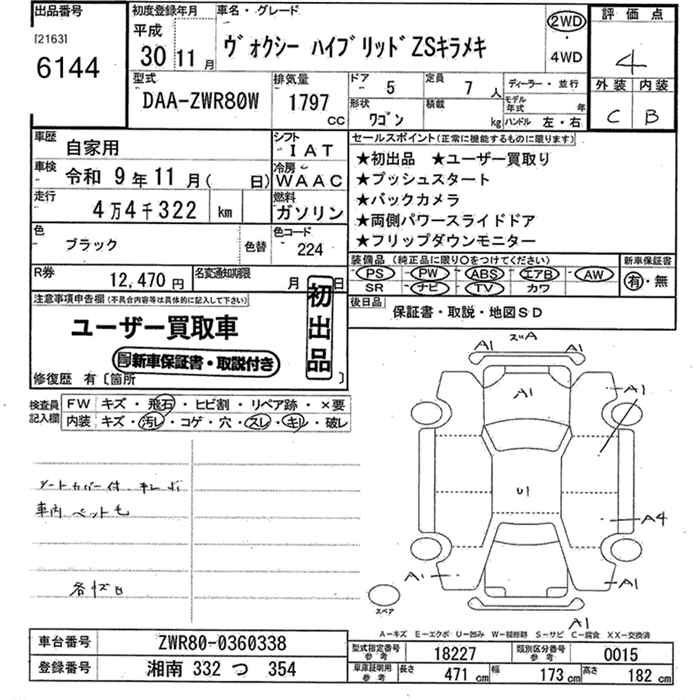 出品番号 初度登録年月 車名・グレード 2WD 評価点
[2163] 平成
6144 30 11月 ヴォクシー ハイブリッドZSキラメキ ・ 4
4WD
型式 排気量 ドア 5 定員 7人 ディーラー・並行 外装 内装
DAA-ZWR80W 1797cc 形状 ワゴン 積載 kg モデル年式 年 C B
ハンドル 左・右
車歴 自家用 シフト IAT セールスポイント(正常に機能するものに限ります)
車検 令和 9年11月( 日) 冷房 WAAC ★初出品 ★ユーザー買取り
★プッシュスタート
走行 4万4千322 km 燃料 ガソリン ★バックカメラ
★両側パワースライドドア
色 ブラック 色替 色コード 224 ★フリップダウンモニター
装備品(純正品に限り○をつけてください) 新車保証書
R券 12,470円 名変通知期限 月 日 PS PW ABS エアB AW 有・無
SR ナビ TV カワ
注意事項申告欄(不具合内容等は具体的に記入して下さい) 初出品 後日品 保証書・取説・地図SD
ユーザー買取車
新車保証書・取説付き
修復歴 有〔箇所 〕
検査員記入欄 FW キズ・飛石・ヒビ割・リペア跡・×要
内装 キズ・汚レ・コゲ・穴・スレ・キレ・破レ
A1 A1
A1 A1
シートカバー付
車内 ペット毛
U1
A4
A1 A1
スペア
A1
A-キズ E-エクボ U-凹み W-補修跡 S-サビ C-腐食 XX-交換済
車台番号 ZWR80-0360338 型式指定番号 参考 18227 類別区分番号 参考 0015
登録番号 湘南 332 つ 354 車庫証明用 参考 長さ 471cm 幅 173cm 高さ 182cm